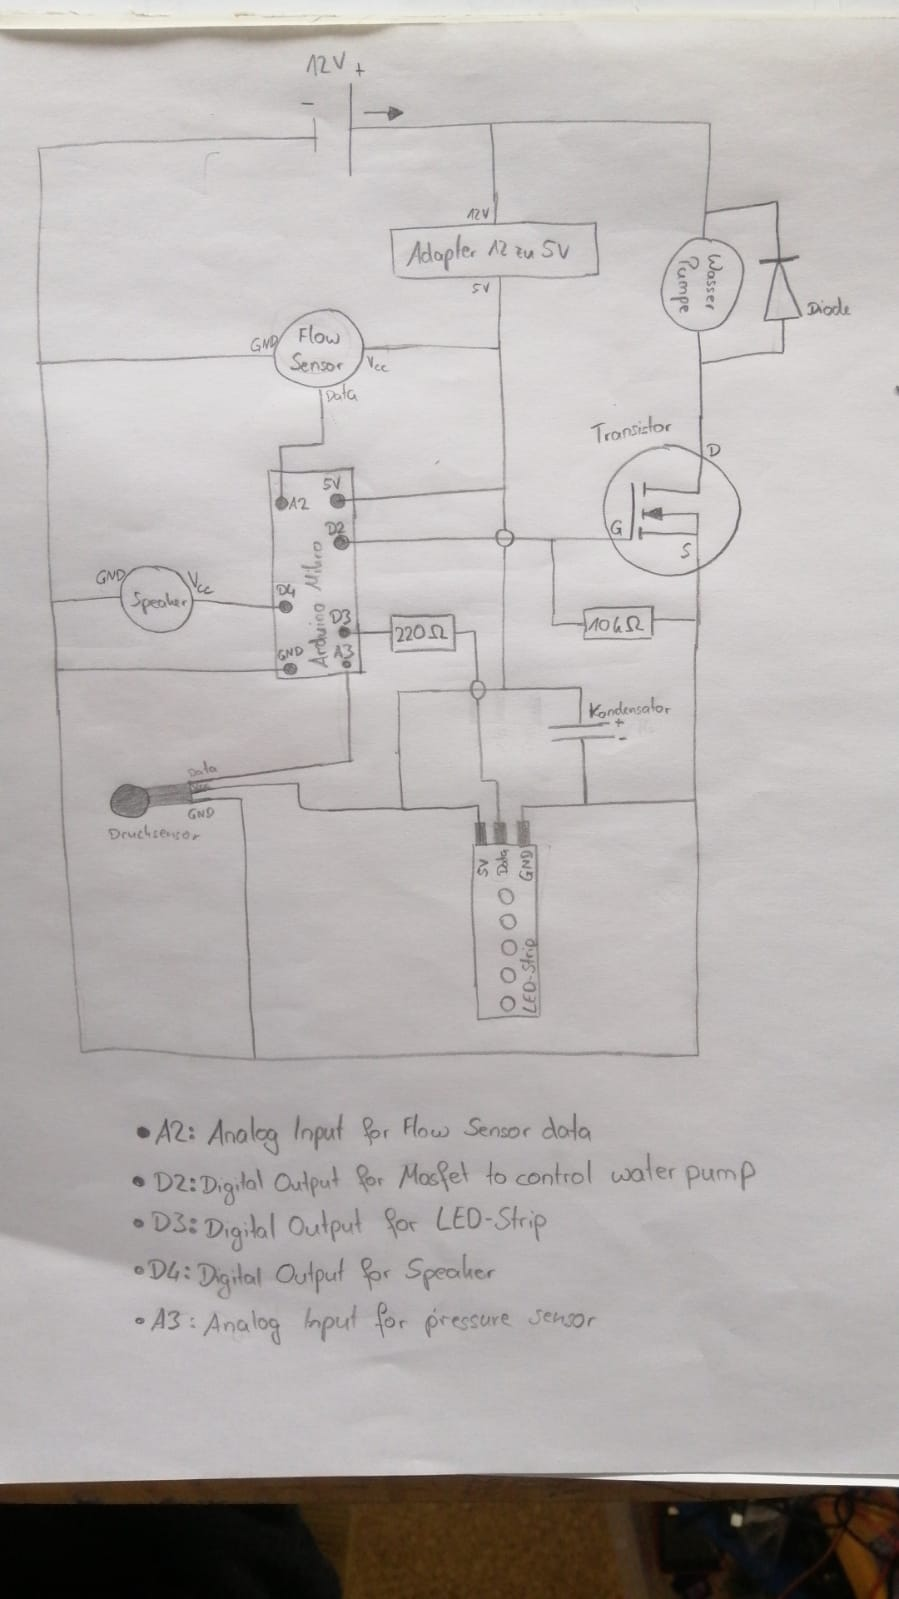 12V +
-
12V
Adapter 12 zu 5V
5V
Wasser
Pumpe
Diode
GND
Flow
Sensor
Vcc
Data
Transistor
D
G
S
A2
5V
D2
D4
D3
GND
A3
Arduino Mikro
GND
Vcc
Speaker
220Ω
10kΩ
Kondensator
+
-
Data
GND
Drucksensor
5V
Data
GND
LED-Strip
• A2: Analog Input for Flow Sensor data
• D2: Digital Output for Mosfet to control water pump
• D3: Digital Output for LED-Strip
• D4: Digital Output for Speaker
• A3: Analog Input for pressure sensor